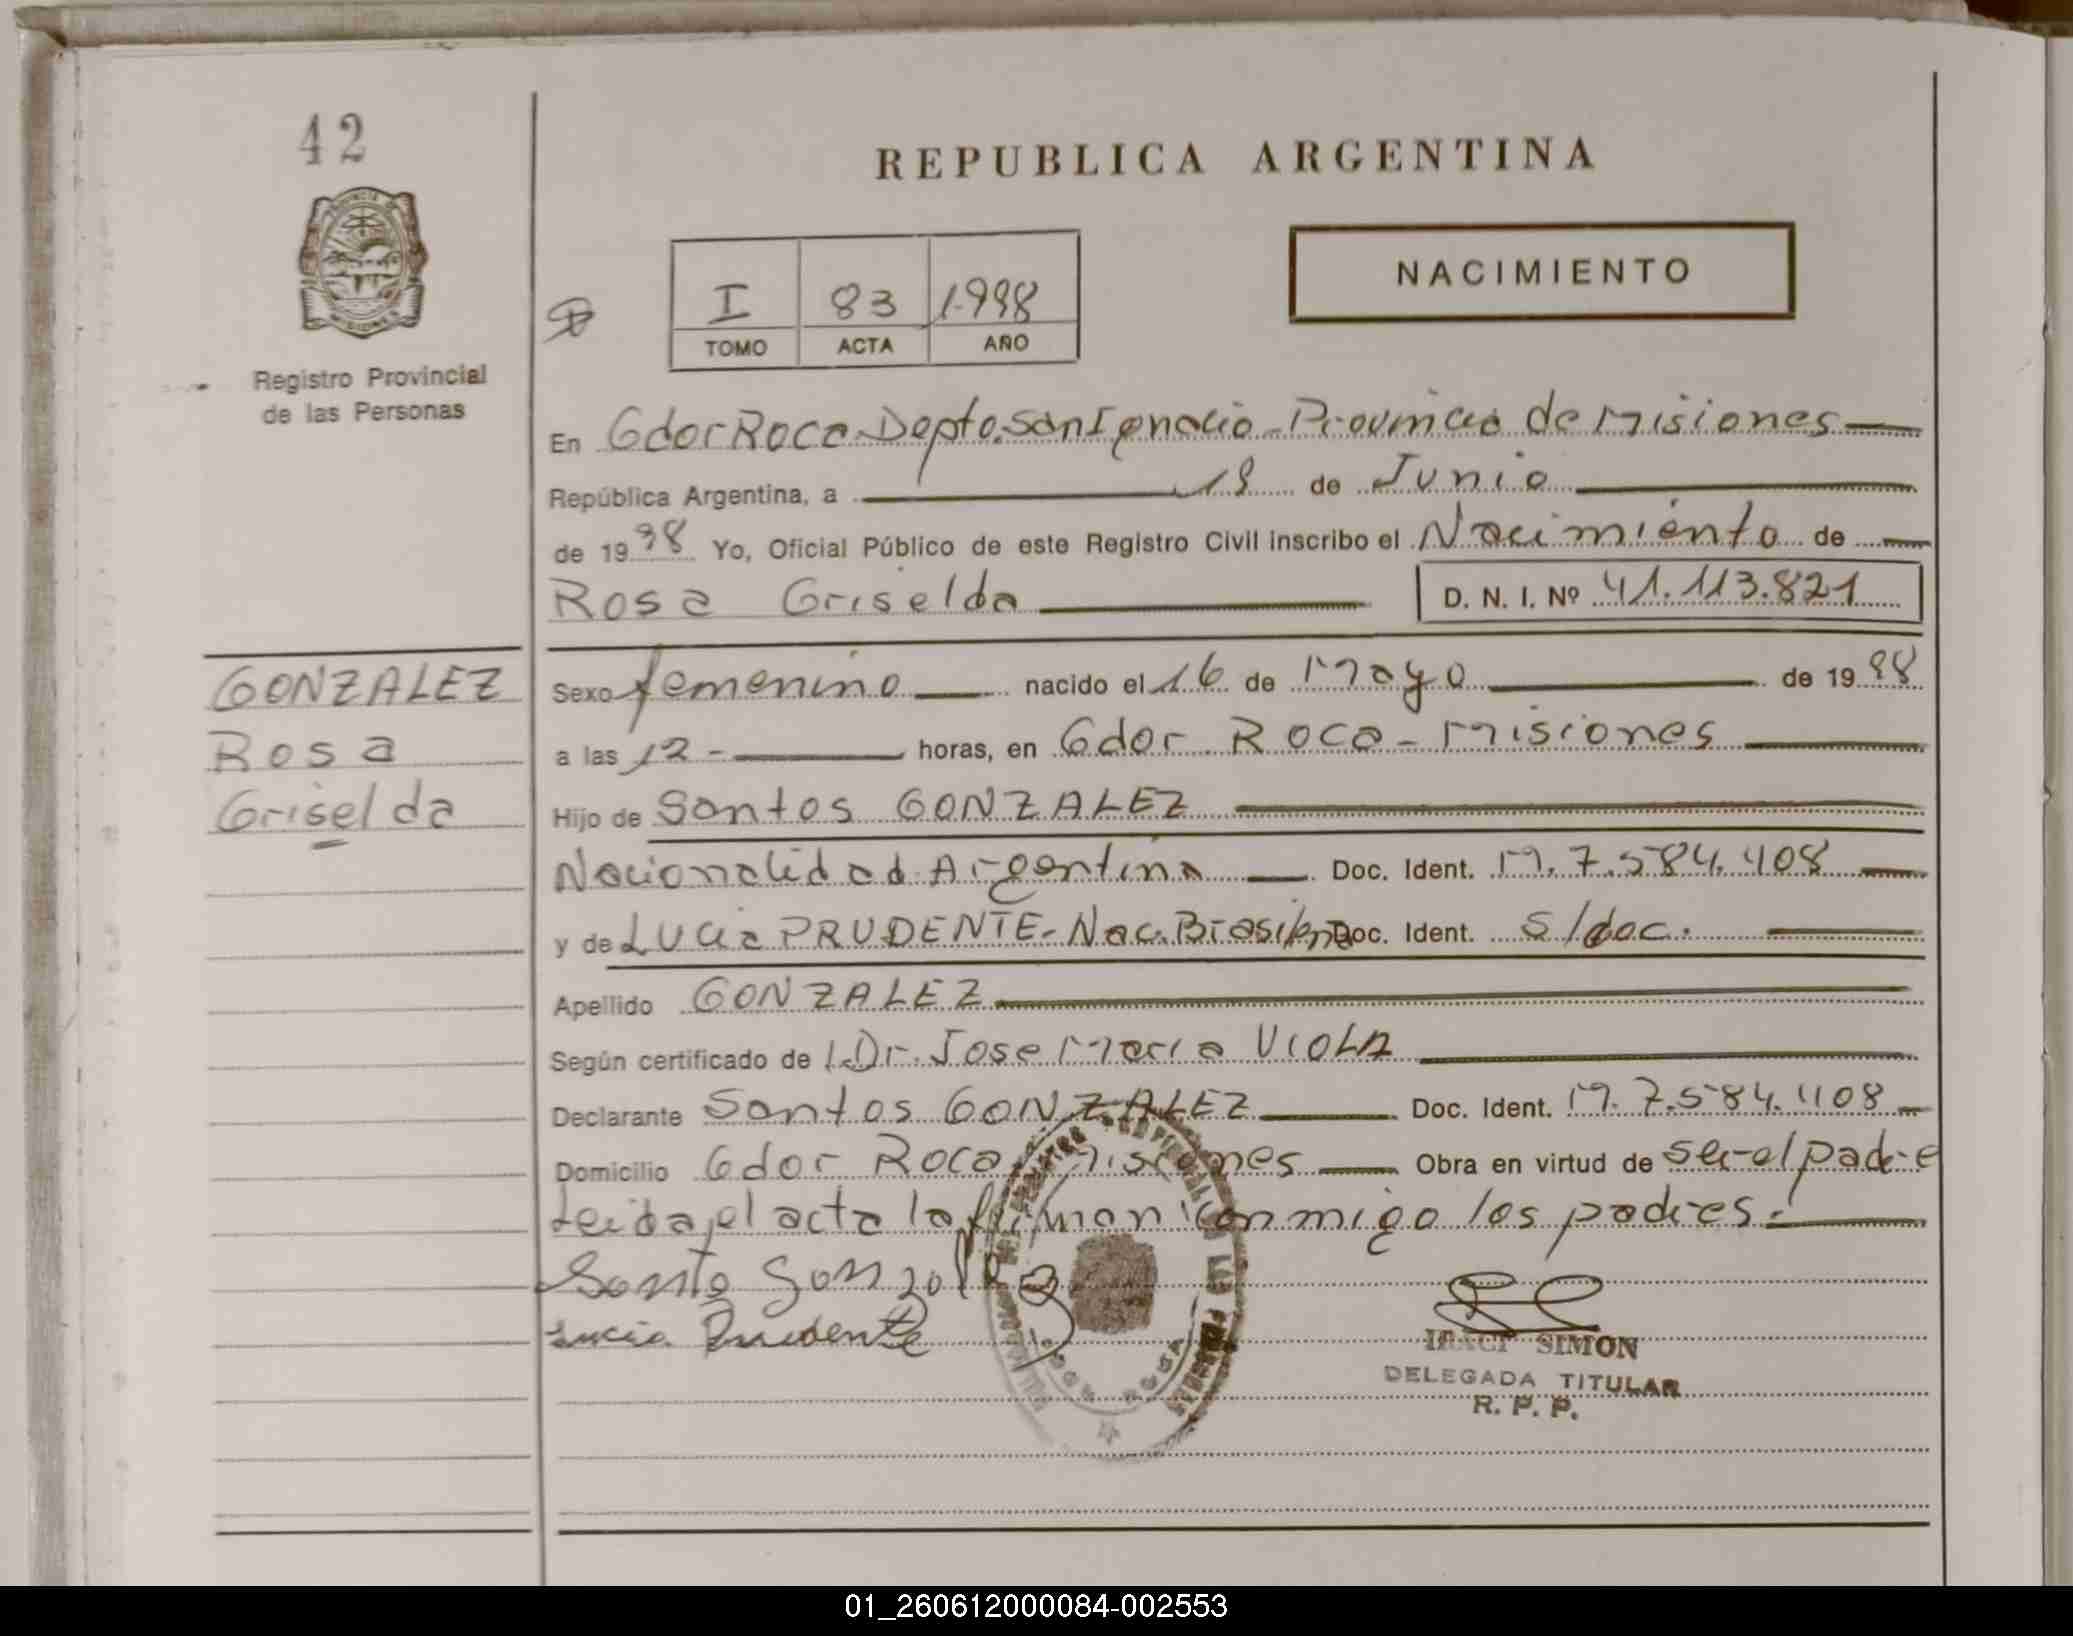 42
REPUBLICA ARGENTINA
NACIMIENTO
I 83 1.998
TOMO ACTA AÑO
Registro Provincial
de las Personas
En Gdor Roca Depto. San Ignacio - Provincia de Misiones
República Argentina, a 18 de Junio
de 1998 Yo, Oficial Público de este Registro Civil inscribo el Nacimiento de
Rosa Griselda D. N. I. Nº 41.113.821
GONZALEZ
Rosa
Griselda
Sexo femenino nacido el 16 de Mayo de 1998
a las 12 - horas, en Gdor Roca - Misiones
Hijo de Santos GONZALEZ
Nacionalidad Argentina Doc. Ident. M. 7.584.408
y de Lucia PRUDENTE - Nac. Brasilena Doc. Ident. S/doc.
Apellido GONZALEZ
Según certificado de l Dr. Jose Maria VIOLA
Declarante Santos GONZALEZ Doc. Ident. M. 7.584.408
Domicilio Gdor Roca Misiones Obra en virtud de ser el padre
Leida el acta la firman conmigo los padres.
Lucia Prudente
SIMON
DELEGADA TITULAR
R. P. P.
01_260612000084-002553